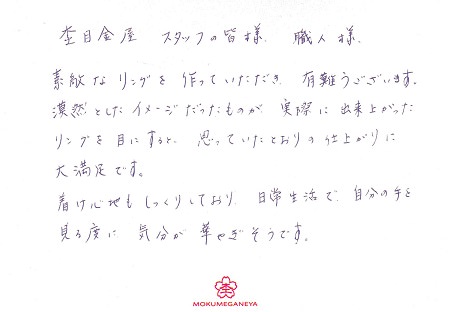 杢目金屋 スタッフの皆様. 職人様.
素敵なリングを作っていただき. 有難うございます.
漠然としたイメージだったものが. 実際に出来上がった
リングを目にすると. 思っていたとおりの仕上がりに
大満足です。
着け心地もしっくりしており. 日常生活で. 自分の手を
見る度に 気分が 華やぎそうです。
MOKUMEGANEYA